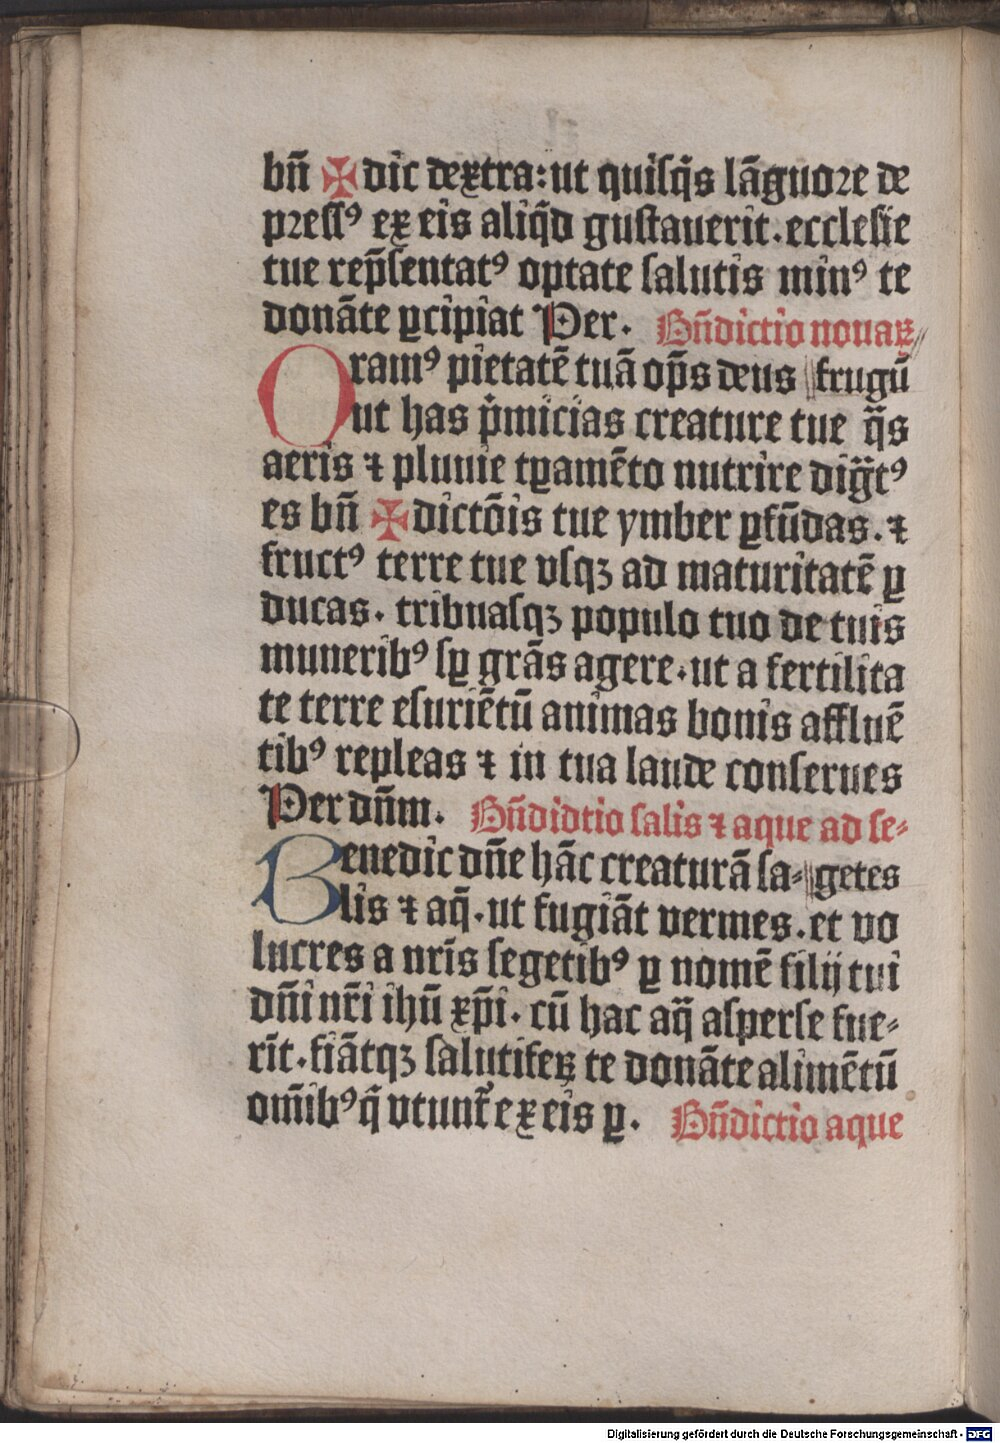 bn̄ ✠ dic dextra: ut quiſq̄s lāguore de
preſſꝰ ex eis aliq̄d guſtauerit. eccleſie
tue rep̄ſentatꝰ optate ſalutis minꝰ te
donāte ꝑcipiat Per. Bn̄dictio nouaꝝ
Oramꝰ pietatē tuā op̄s deus frugū
ut has p̄micias creature tue q̄s
aeris ⁊ pluuie tꝑamēto nutrire dig̈tꝰ
es bn̄ ✠ dictōis tue ymber ꝑfūdas. ⁊
fructꝰ terre tue vſqꝫ ad maturitatē ꝑ
ducas. tribuaſqꝫ populo tuo de tuis
muneribꝰ ſꝑ grās agere. ut a fertilita
te terre eſuriētū animas bonis affluē
tibꝰ repleas ⁊ in tua laude conſerues
Per dn̄m. Bn̄didtio ſalis ⁊ aque ad ſe-
Benedic dn̄e hāc creaturā ſa- getes
lis ⁊ aq̄. ut fugiāt vermes. et vo
lucres a nr̄is ſegetibꝰ ꝑ nomē filij tui
dn̄i nr̄i ihū xp̄i. cū hac aq̄ aſperſe fue-
rīt. fiātqꝫ ſalutifeꝝ te donāte alimētū
om̄ibꝰ q̄ vtunt᷑ ex eis ꝑ. Bn̄dictio aque
Digitalisierung gefördert durch die Deutsche Forschungsgemeinschaft - DFG